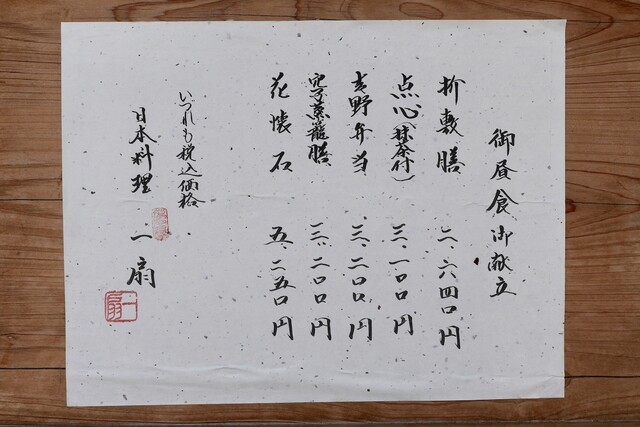 御昼食御献立
折敷膳 二、六四〇円
点心(抹茶付) 三、一〇〇円
吉野弁当 三、二〇〇円
蒸籠膳 三、二〇〇円
花懐石 五、二五〇円
いづれも税込価格
日本料理 一扇
一扇